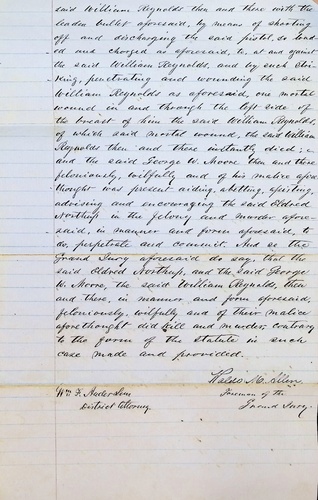 said William Reynolds then and there with the
leaden bullet aforesaid, by means of shooting
off and discharging the said pistol, so load-
ed and charged as aforesaid, to, at and against
the said William Reynolds, and by such stri-
king, penetrating and wounding the said
William Reynolds as aforesaid, one mortal
wound in and through the left side of
the breast of him the said William Reynolds,
of which said mortal wound, the said William
Reynolds then and there instantly died;
and the said George W. Moore then and there
feloniously, wilfully and of his malice afore-
thought was present aiding, abetting, assisting,
advising and encouraging the said Eldred
Northup in the felony and murder afore-
said, in manner and form aforesaid, to
do, perpetrate and commit. And so the
Grand Jury aforesaid do say, that the
said Eldred Northup, and the said George
W. Moore, the said William Reynolds, then
and there, in manner and form aforesaid,
feloniously, wilfully and of their malice
aforethought did kill and murder, contrary
to the form of the statute in such
case made and provided.
M. Allen
Wm F.
Foreman of the
District Attorney
Grand Jury.